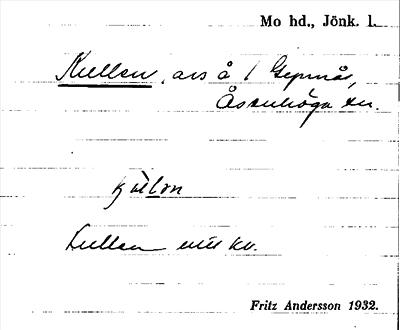 Mo hd., Jönk. l.
Kullen, avs å 1 Gepnås,
Åsenhöga sn.
Kullen
Fritz Andersson 1932.